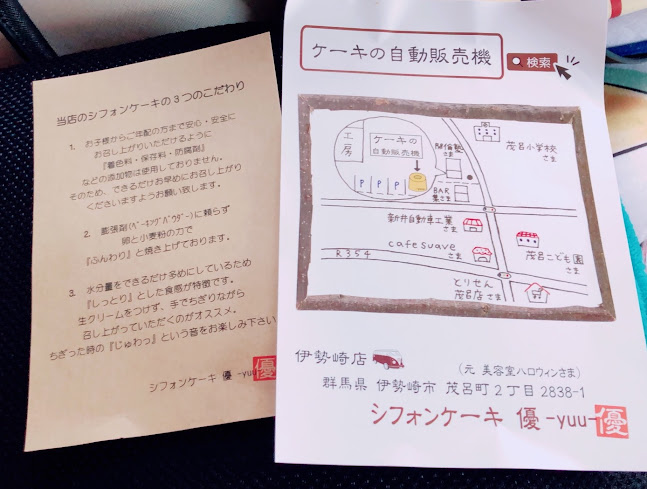 当店のシフォンケーキの３つのこだわり
1. お子様からご年配の方まで安心・安全に
お召し上がりいただけるように
『着色料・保存料・防腐剤』
などの添加物は使用しておりません。
そのため、できるだけお早めにお召し上がり
くださいますようお願い致します。
2. 膨張剤(ﾍﾞｰｷﾝｸﾞﾊﾟｳﾀﾞｰ)に頼らず
卵と小麦粉の力で
『ふんわり』と焼き上げております。
3. 水分量をできるだけ多めにしているため
『しっとり』とした食感が特徴です。
生クリームをつけず、手でちぎりながら
召し上がっていただくのがオススメ。
ちぎった時の『じゅわっ』という音をお楽しみ下さい
シフォンケーキ 優 -yuu-
優
ケーキの自動販売機
検索
工房
ケーキの
自動販売機
P P P
さま
BAR
さま
茂呂小学校
さま
新井自動車工業
さま
cafe suave
さま
R354
茂呂こども園
さま
とりせん
茂呂店さま
伊勢崎店
（元 美容室ハロウィンさま）
群馬県 伊勢崎市 茂呂町２丁目 2838-1
シフォンケーキ 優 -yuu-
優